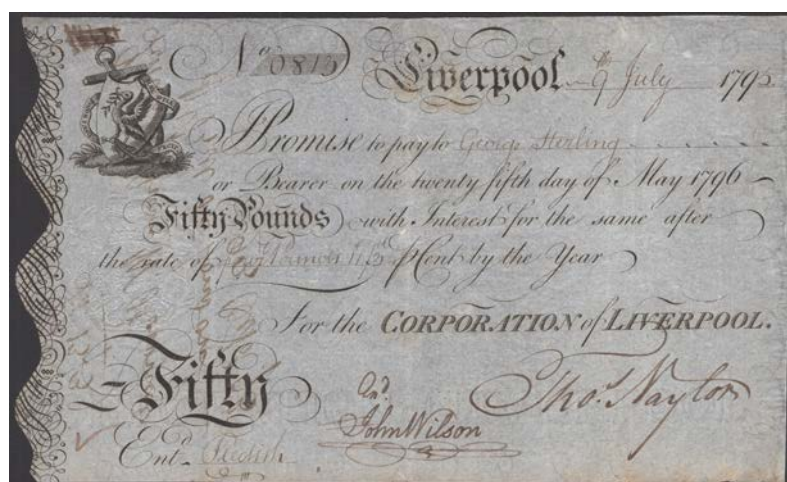 No. 0815 Liverpool 9th July 179
Promise to pay to George Sterling
or Bearer on the twenty fifth day of May 1796
Fifty Pounds with Interest for the same after
the rate of Four Pounds P Cent by the Year
For the CORPORATION of LIVERPOOL.
Fifty
Thos. Naylor
John Wilson
Entd.